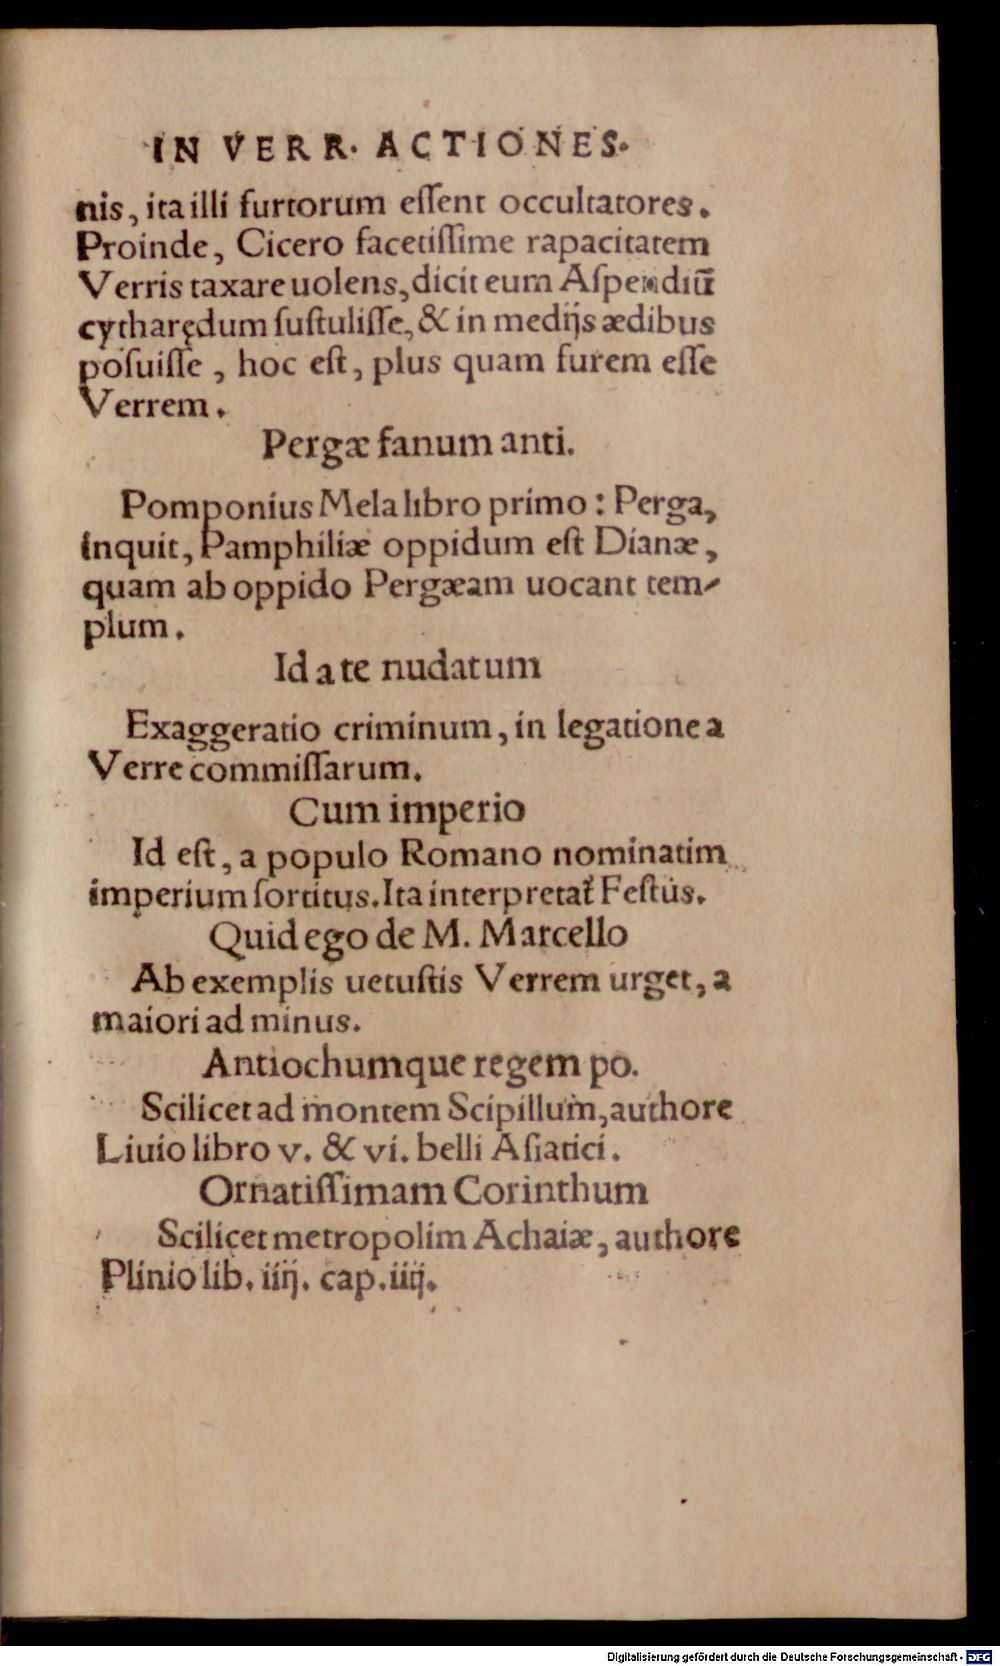 IN VERR. ACTIONES.
nis, ita illi furtorum eſſent occultatores.
Proinde, Cicero facetiſſime rapacitatem
Verris taxare uolens, dicit eum Aſpendiū
cytharędum ſuſtuliſſe, & in medijs ædibus
poſuiſſe, hoc eſt, plus quam furem eſſe
Verrem.
Pergæ fanum anti.
Pomponius Mela libro primo: Perga,
inquit, Pamphiliæ oppidum eſt Dianæ,
quam ab oppido Pergæam uocant tem-
plum.
Id a te nudatum
Exaggeratio criminum, in legatione a
Verre commiſſarum.
Cum imperio
Id eſt, a populo Romano nominatim
imperium ſortitus. Ita interpretat᷑ Feſtus.
Quid ego de M. Marcello
Ab exemplis uetuſtis Verrem urget, a
maiori ad minus.
Antiochumque regem po.
Scilicet ad montem Scipillum, authore
Liuio libro v. & vi. belli Aſiatici.
Ornatiſſimam Corinthum
Scilicet metropolim Achaiæ, authore
Plinio lib. iiij. cap. iiij.
Digitalisierung gefördert durch die Deutsche Forschungsgemeinschaft - DFG